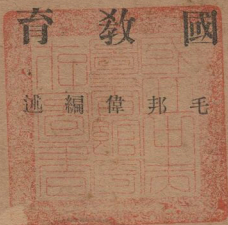 國教育
毛邦偉編述